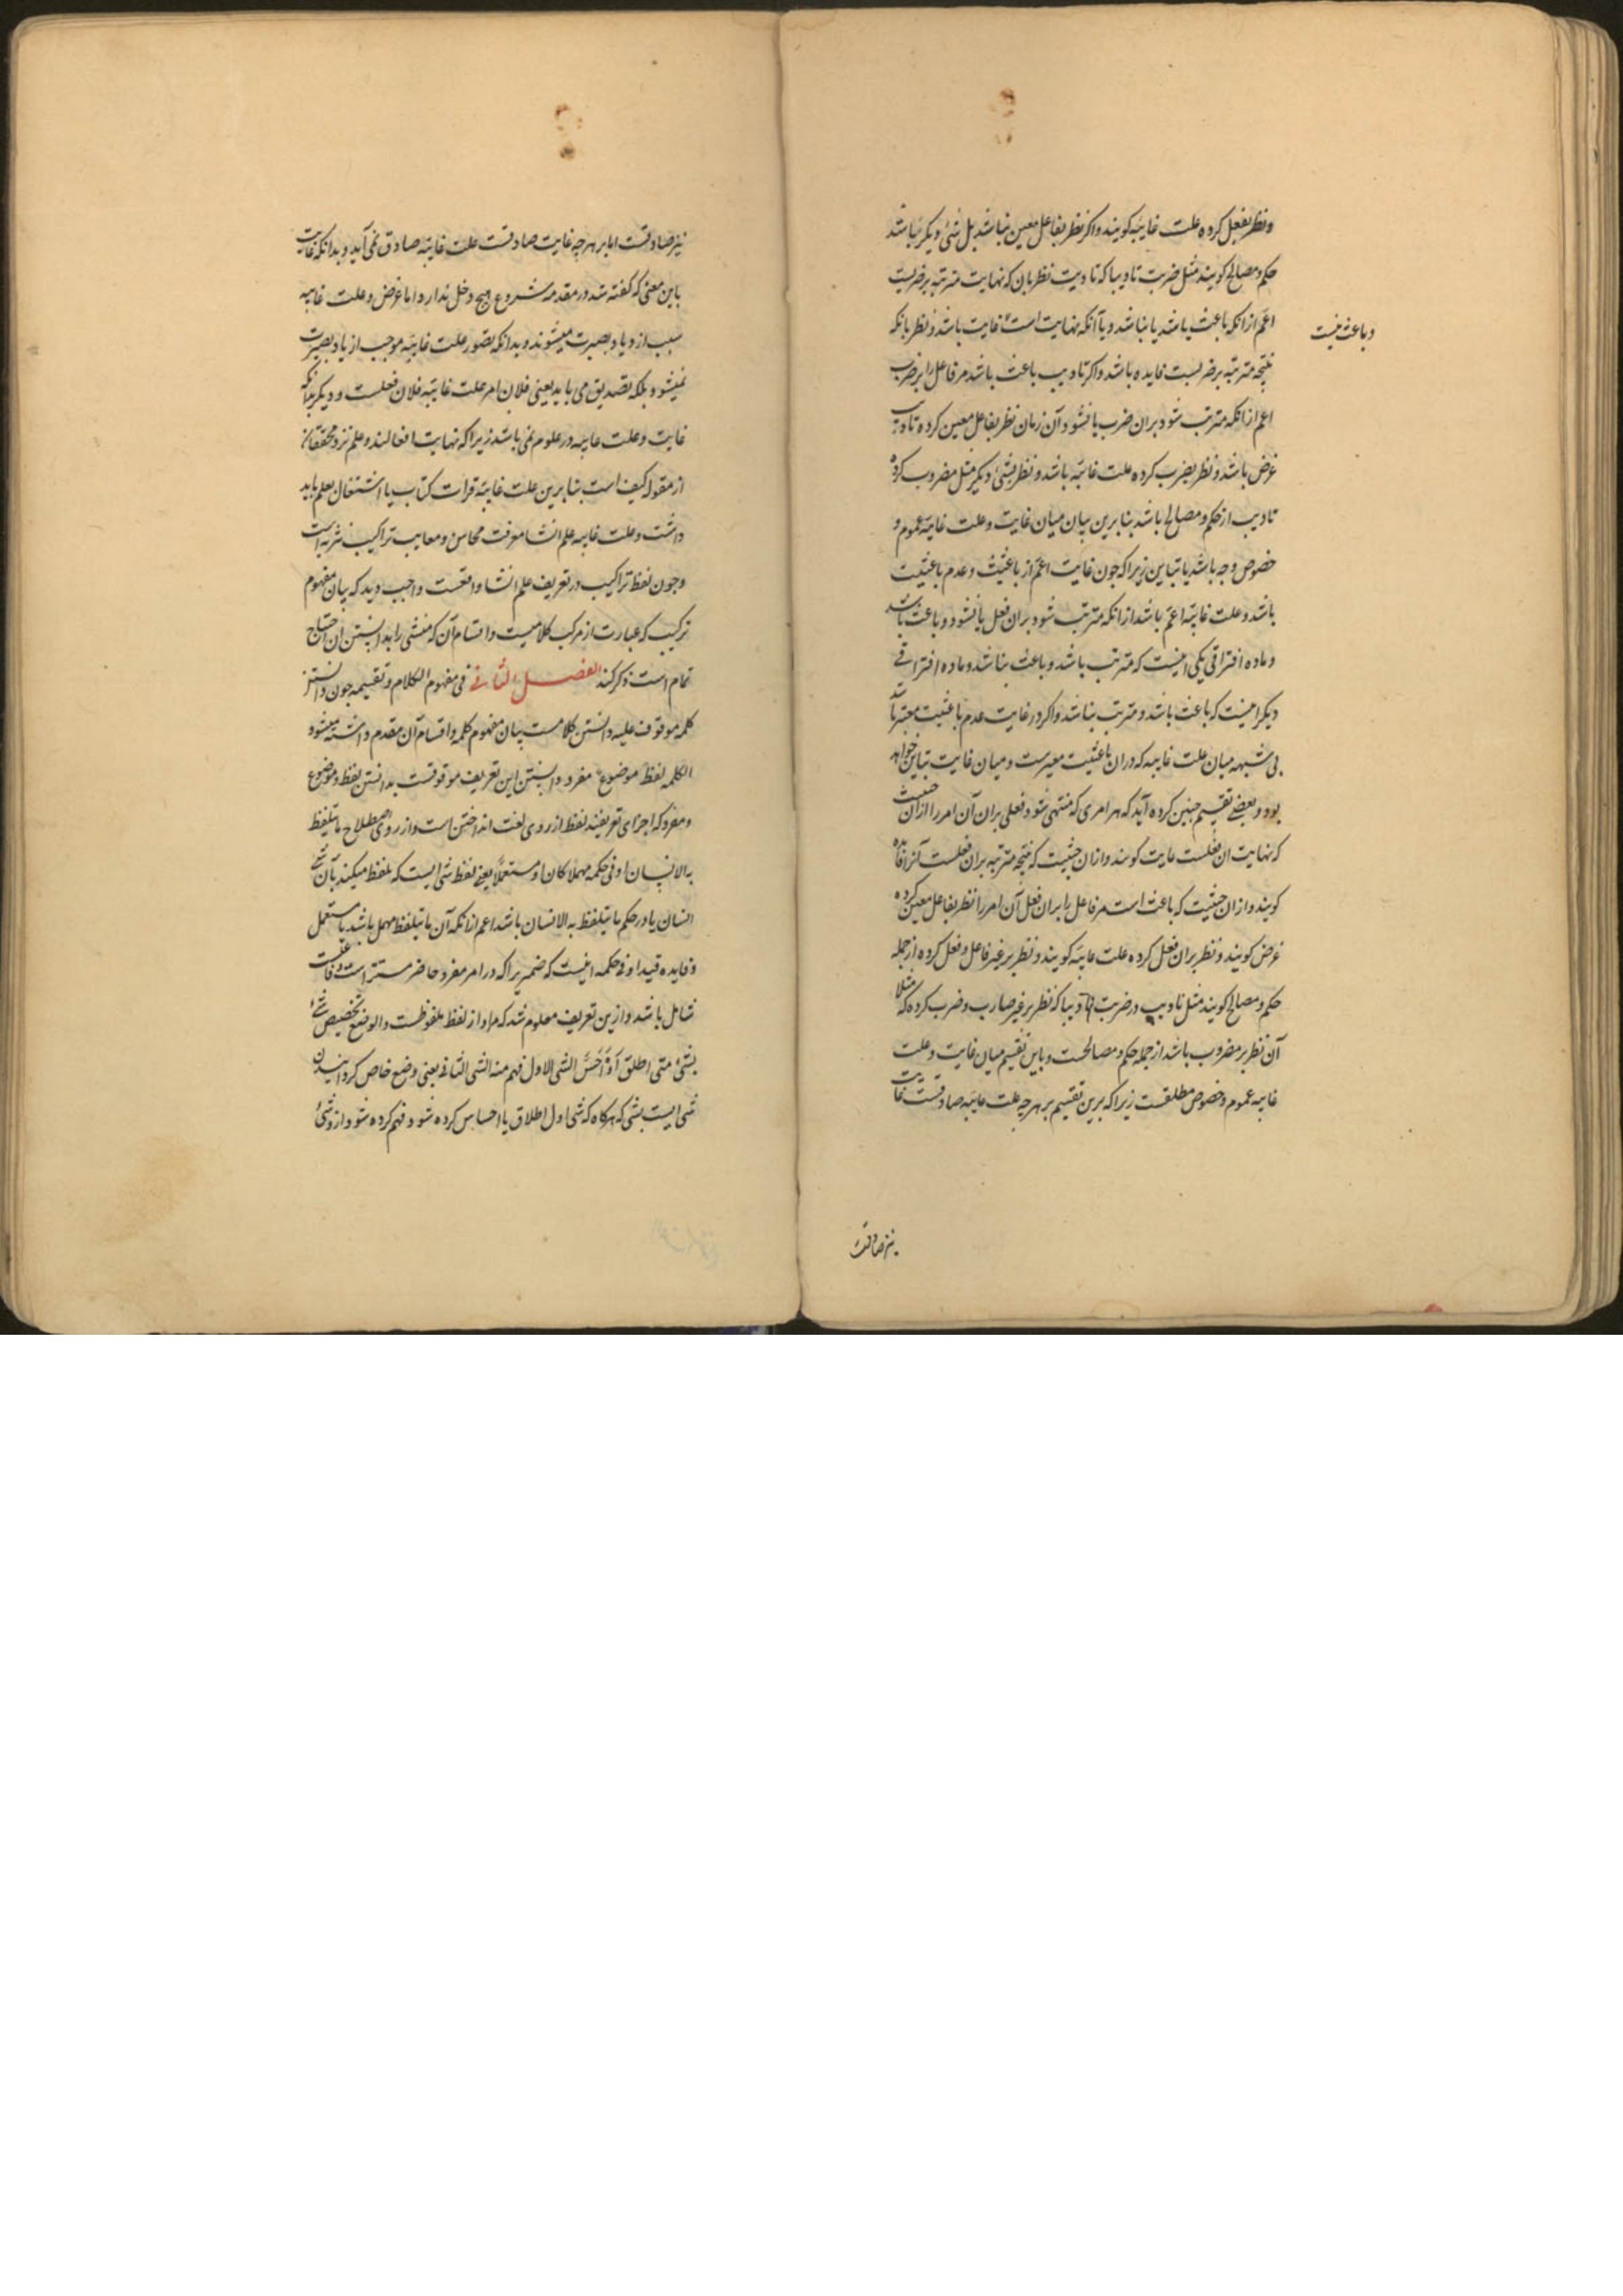 ونظر بفعل کرده علت غاییه کویند واکر نظر بفاعل معین نباشد بل شئ دیکر باشد
حکم و مصالح کویند مثل ضربت تادیبا که تادیب نظر بان که نهایت مترتبه بر ضربست
اعم از انکه باعث باشد یا نباشد و یا آنکه نهایت است غایت باشد و نظر بانکه
وباعث نیست
نتیجه مترتبه بر ضربست فایده باشد واکر تادیب باعث باشد مر فاعل را بر ضرب
اعم از انکه مترتب شود بران ضرب یا نشود آن زمان نظر بفاعل معین کرده تادیب
غرض باشد و نظر بضرب کرده علت غاییه باشد و نظر بشئ دیکر مثل مضروب کرده
تادیب از حکم و مصالح باشد بنا برین بیان میان غایت و علت غاییه عموم و
خصوص وجه باشد یا تباین زیرا که چون غایت اعم از باعثیت وعدم باعثیت
باشد و علت غاییه اعم باشد از انکه مترتب شود بران فعل یا نشود و باعث باشد
وماده افتراقی یکی اینست که مترتب باشد و باعث نباشد وماده افتراقی
دیکر اینست که باعث باشد و مترتب نباشد واکر در غایت عدم باعثیت معتبر باشد
بی شبهه میان علت غاییه که دران باعثیت معتبرست ومیان غایت تباین خواهد
بود و بعضی تقسیم چنین کرده اند که هر امری که منتهی شود فعلی بران آن امر را ازان حیثیت
که نهایت ان فعلست غایت کویند وازان حیثیت که نتیجه مترتبه بران فعلست آنرا فایده
کویند وازان حیثیت که باعث است مر فاعل را بران فعل آن امر را نظر بفاعل معین کرده
غرض کویند و نظر بران فعل کرده علت غاییه کویند و نظر بر غیر فاعل و فعل کرده از جمله
حکم و مصالح کویند مثل تادیب در ضربت تادیبا که نظر بر غیر ضارب و ضرب کرده که مثلا
آن نظر بر مضروب باشد از جمله حکم و مصالحست و باین تقسیم میان غایت و علت
غاییه عموم و خصوص مطلقست زیرا که برین تقسیم بر هر چه علت غاییه صادقست غایت
نیز صادقست
نیز صادقست اما بر هر چه غایت صادقست علت غاییه صادق نمی آید و بدانکه غایت
باین معنی که کفته شد در مقدمه شروع هیچ دخل ندارد اما غرض و علت غاییه
سبب ازدیاد بصیرت میشوند و بدانکه تصور علت غاییه موجب ازیاد بصیرت
نمیشود بلکه تصدیق می باید یعنی فلان امر علت غاییه فلان فعلست و دیکر بدانکه
غایت و علت غاییه در علوم نمی باشد زیرا که نهایت افعالند و علم نزد محققان
از مقوله کیف است بنا برین علت غاییه قرات کتاب یا اشتغال بعلم باید
داشت و علت غاییه علم انشا معرفت محاسن و معایب تراکیب نثریه است
وچون لفظ تراکیب در تعریف علم انشا واقعست واجب دید که بیان مفهوم
ترکیب که عبارت از مرکب کلامیست واقسام آن که منشی را بدانستن ان احتیاج
تمام است ذکر کند الفصل الثانی فی مفهوم الکلام وتقسیمه چون دانستن
کلمه موقوف علیه دانستن کلامست بیان مفهوم کلمه واقسام آن مقدم داشته میشود
الکلمه لفظ موضوع مفرد دانستن این تعریف موقوفست بدانستن لفظ و موضوع
ومفرد که اجزای تعریفند لفظ از روی لغت انداختن است واز روی اصطلاح ما یتلفظ
به الانسان او فی حکمه مهملا کان او مستعملا یعنی لفظ شی ایست که تلفظ میکند بآن شئ
انسان یا در حکم ما یتلفظ به الانسان باشد اعم از انکه آن ما یتلفظ مهمل باشد یا مستعمل
وفایده قید او فی حکمه اینست که ضمیریرا که در امر مفرد حاضر مستتر است
شامل باشد وازین تعریف معلوم شد که مراد از لفظ ملفوظست والوضع تخصیص شئ
بشئ متی اطلق او احس الشی الاول فهم منه الشی الثانی یعنی وضع خاص کردانیدن
شی ایست بشی که هرکاه که شی اول اطلاق یا احساس کرده شود فهم کرده شود از وشئ